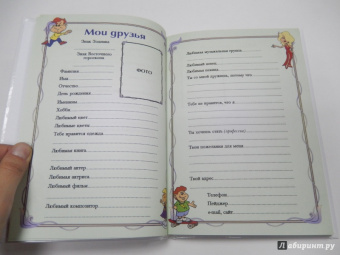 Мои друзья
Знак Зодиака
Знак Восточного
гороскопа
ФОТО
Фамилия
Имя
Отчество
День рождения
Именины
Хобби
Любимый цвет
Любимые цветы
Тебе нравится одежда
Любимая книга
Любимый актер
Любимая актриса
Любимый фильм
Любимый композитор
Любимая музыкальная группа
Любимый певец
Любимая певица
Ты со мной дружишь, потому что
Тебе не нравится, что я
Ты лучшее
Твои пожелания для меня
Твой адрес
Телефон
Пейджер
e-mail, сайт
Лабиринт.ру